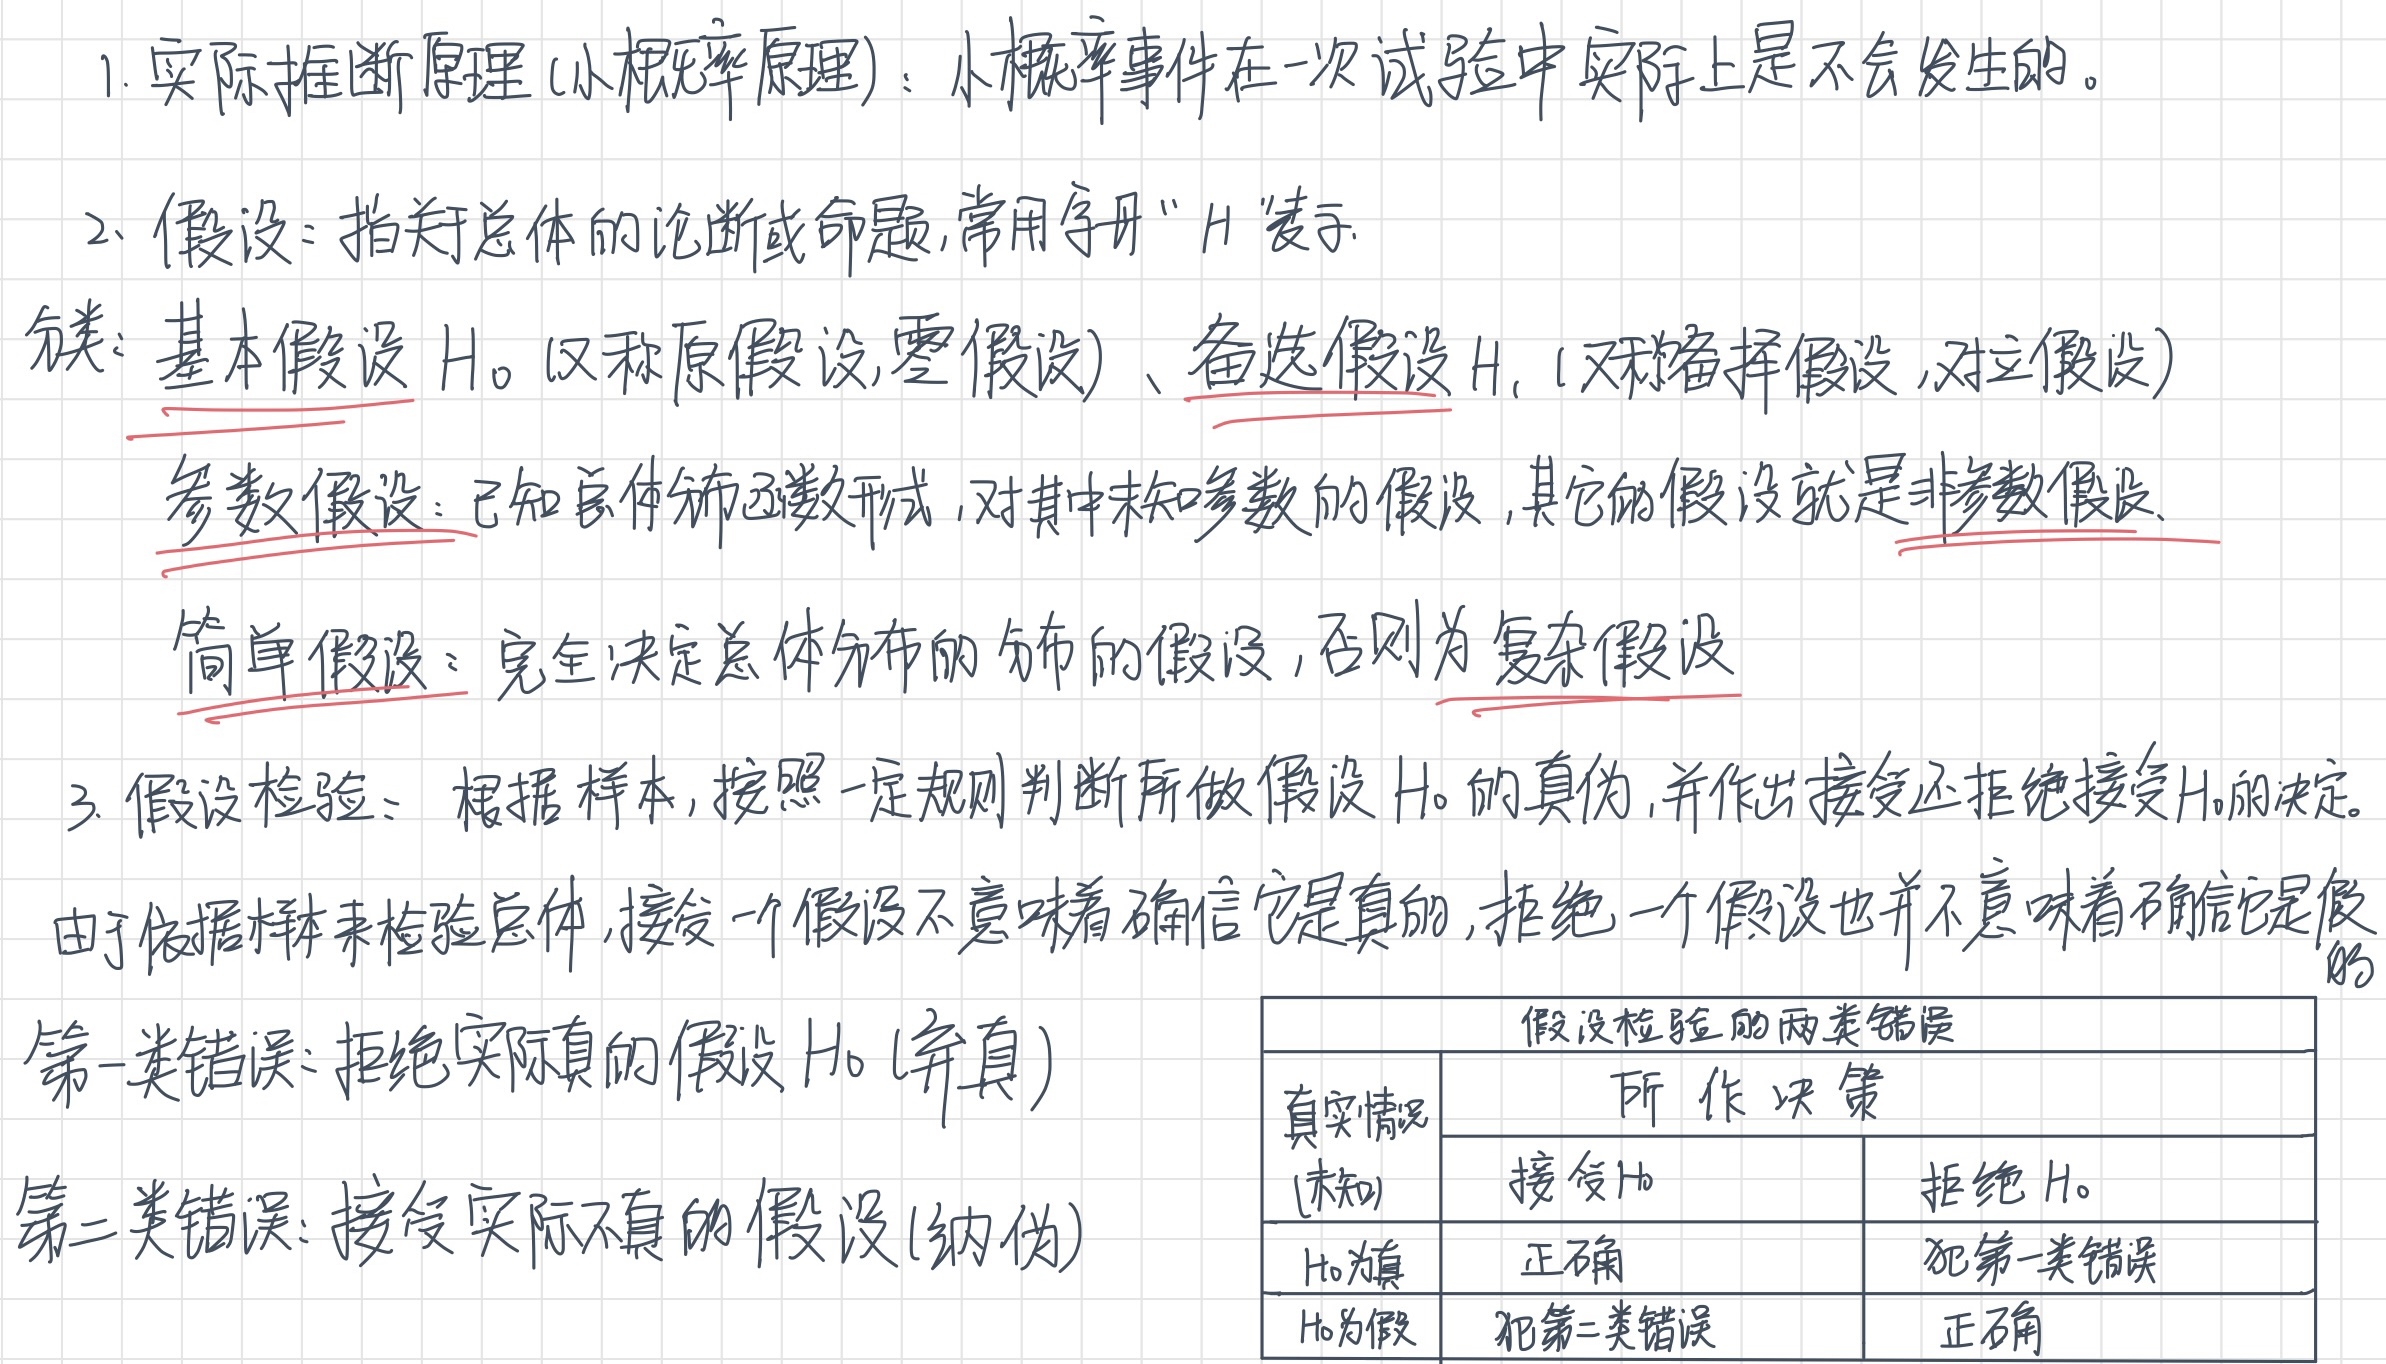 1. 实际推断原理(小概率原理)：小概率事件在一次试验中实际上是不会发生的。
2、假设：指关于总体的论断或命题,常用字母“H”表示.
分类：基本假设 H₀ (又称原假设,零假设)、备选假设 H₁ (又称备择假设,对立假设)
参数假设：已知总体分布函数形式,对其中未知参数的假设,其它的假设就是非参数假设、
简单假设：完全决定总体分布的分布的假设,否则为复杂假设
3. 假设检验： 根据样本,按照一定规则判断所做假设 H₀ 的真伪,并作出接受还拒绝接受H₀的决定。
由于依据样本来检验总体,接受一个假设不意味着确信它是真的,拒绝一个假设也并不意味着确信它是假的
第一类错误：拒绝实际真的假设 H₀ (弃真)
第二类错误：接受实际不真的假设(纳伪)
假设检验的两类错误
真实情况(未知) 所作决策
接受H₀ 拒绝H₀
H₀为真 正确 犯第一类错误
H₀为假 犯第二类错误 正确